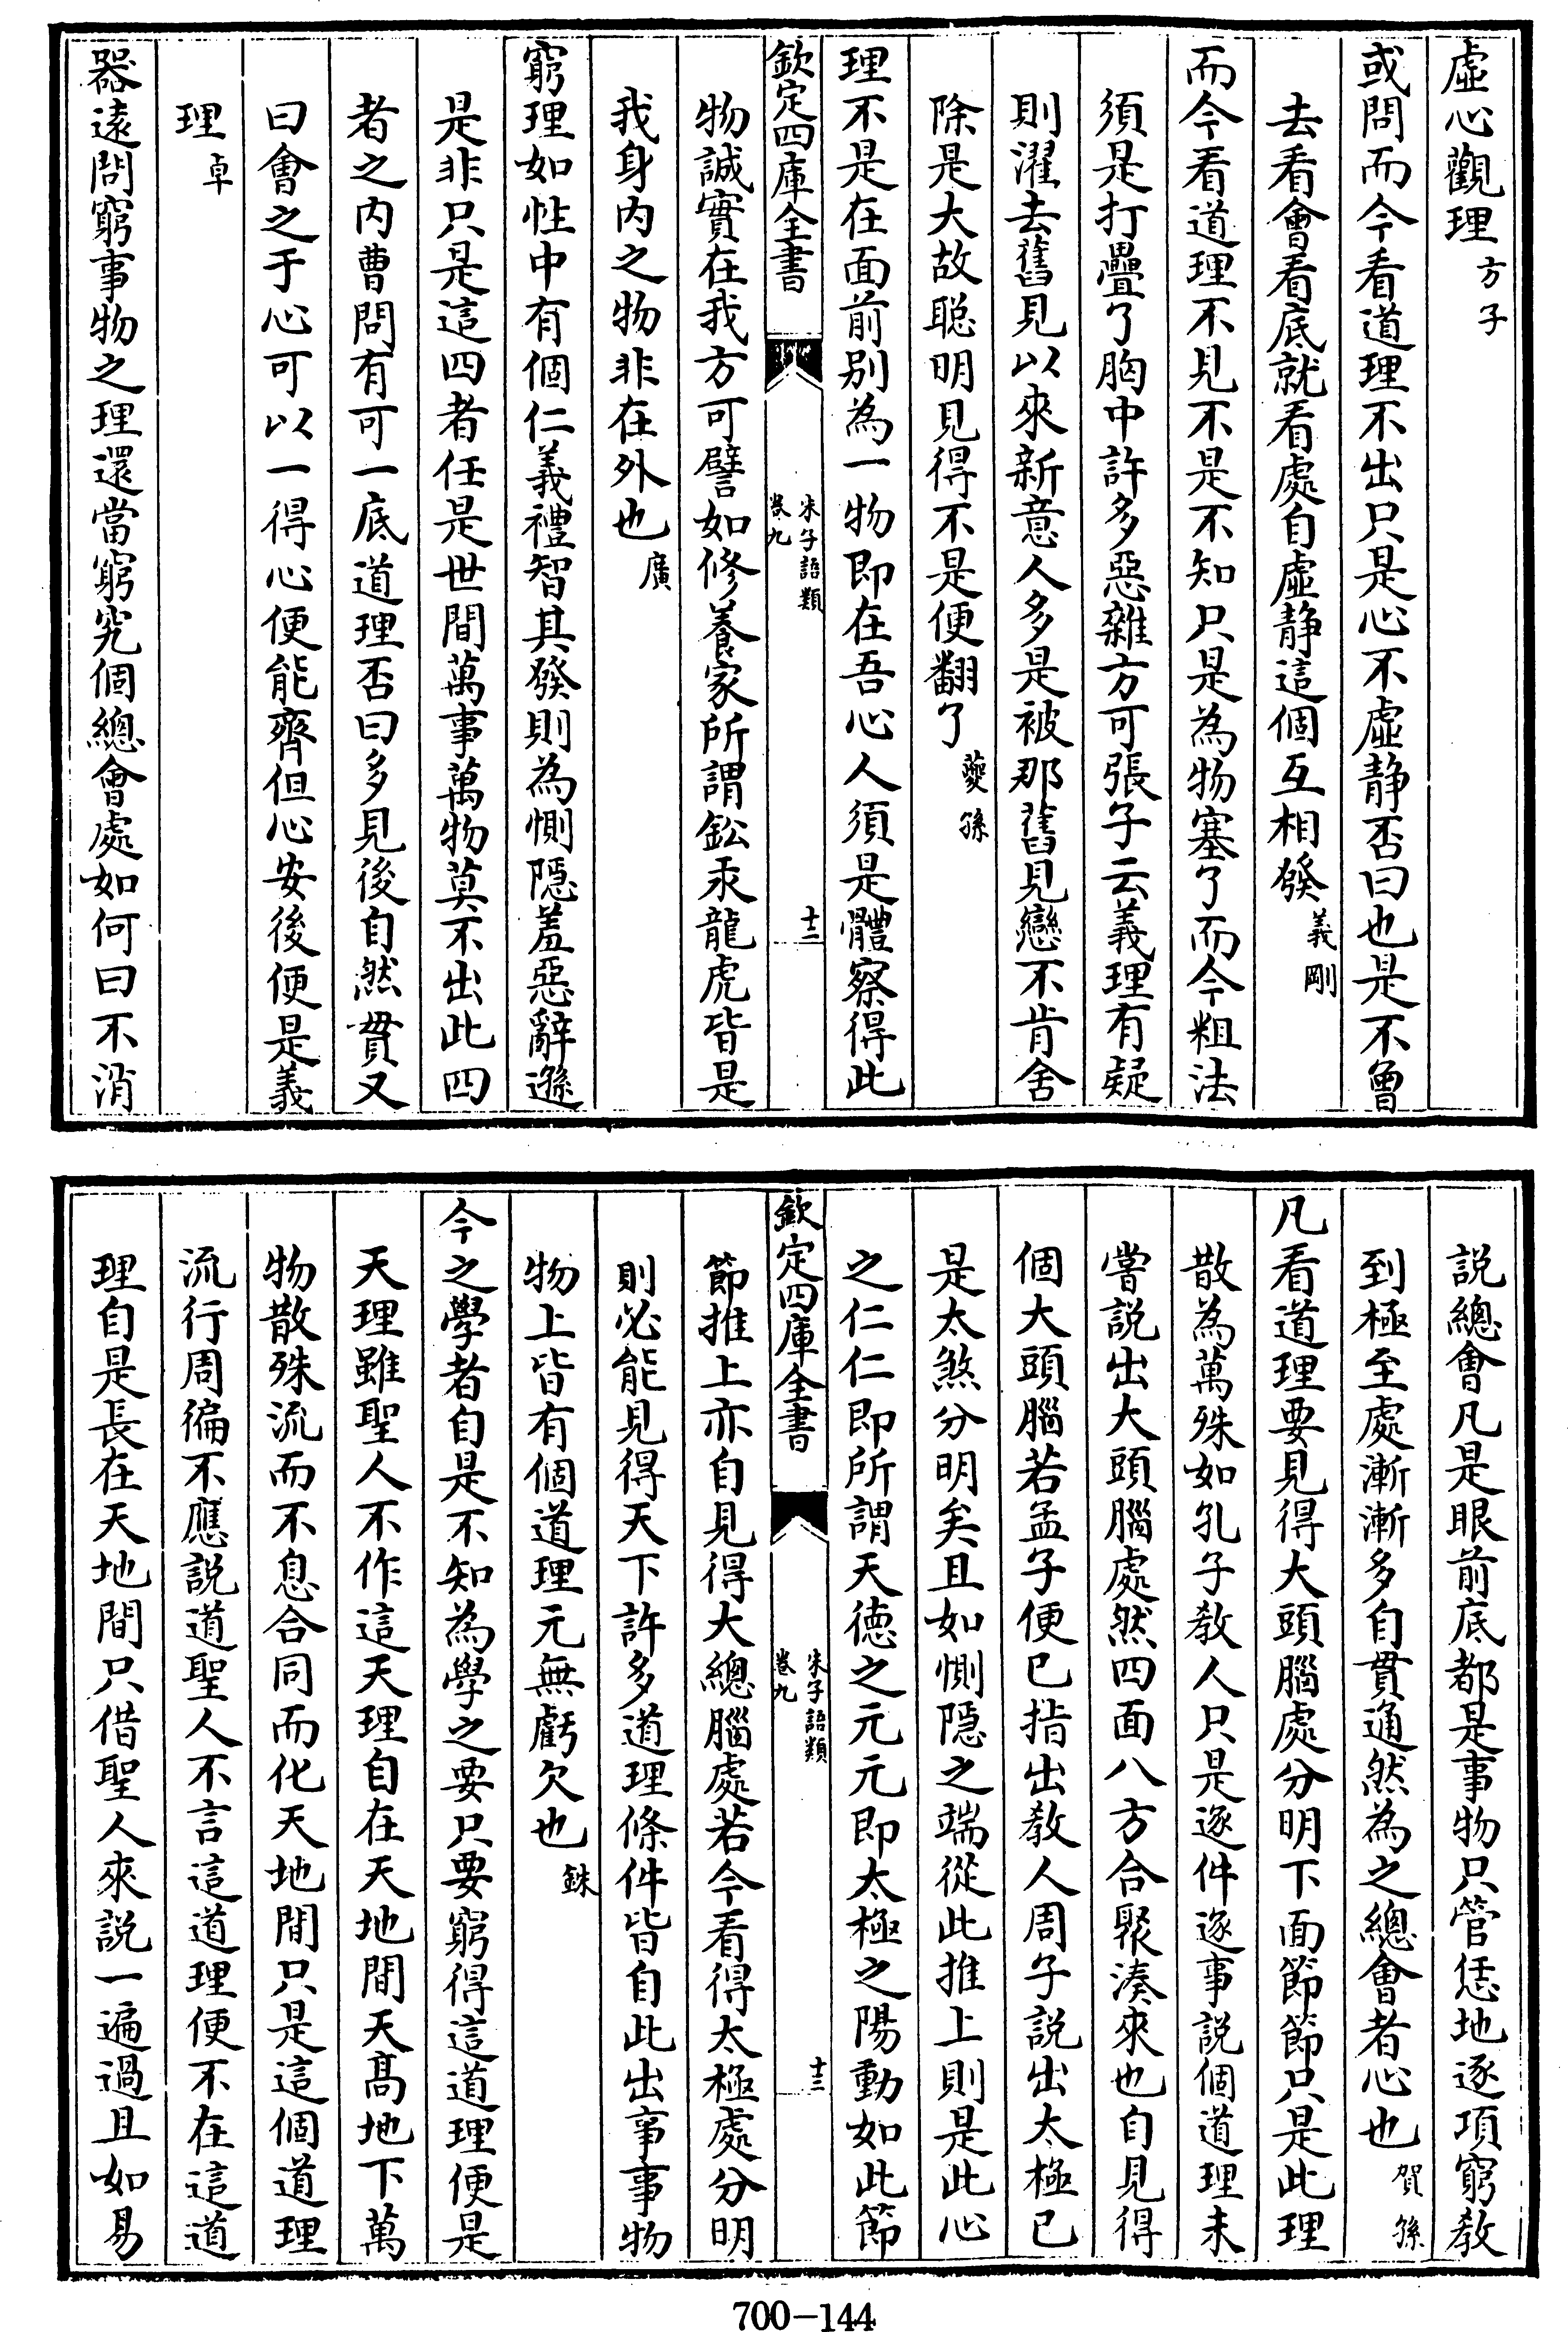 虛心觀理方子
或問而今看道理不出只是心不虛静否曰也是不曾
去看會看底就看處自虛静這個互相發義剛
而今看道理不見不是不知只是為物塞了而今粗法
須是打疊了胸中許多惡雜方可張子云義理有疑
則濯去舊見以來新意人多是被那舊見戀不肯舍
除是大故聰明見得不是便翻了夔孫
理不是在面前别為一物即在吾心人須是體察得此
欽定四庫全書
朱子語類
卷九
十二
物誠實在我方可譬如修養家所謂鉛汞龍虎皆是
我身内之物非在外也廣
窮理如性中有個仁義禮智其發則為惻隱羞惡辭遜
是非只是這四者任是世間萬事萬物莫不出此四
者之内曹問有可一底道理否曰多見後自然貫又
曰會之于心可以一得心便能齊但心安後便是義
理卓
器遠問窮事物之理還當窮究個總會處如何曰不消
說總會凡是眼前底都是事物只管恁地逐項窮教
到極至處漸漸多自貫通然為之總會者心也賀孫
凡看道理要見得大頭腦處分明下面節節只是此理
散為萬殊如孔子教人只是逐件逐事說個道理未
嘗説出大頭腦處然四面八方合聚湊來也自見得
個大頭腦若孟子便已指出教人周子説出太極已
是太煞分明矣且如惻隱之端從此推上則是此心
之仁仁即所謂天德之元元即太極之陽動如此節
欽定四庫全書
朱子語類
卷九
十三
節推上亦自見得大總腦處若今看得太極處分明
則必能見得天下許多道理條件皆自此出事事物
物上皆有個道理元無虧欠也銖
今之學者自是不知為學之要只要窮得這道理便是
天理雖聖人不作這天理自在天地間天髙地下萬
物散殊流而不息合同而化天地間只是這個道理
流行周徧不應説道聖人不言這道理便不在這道
理自是長在天地間只借聖人來説一遍過且如易
700-144